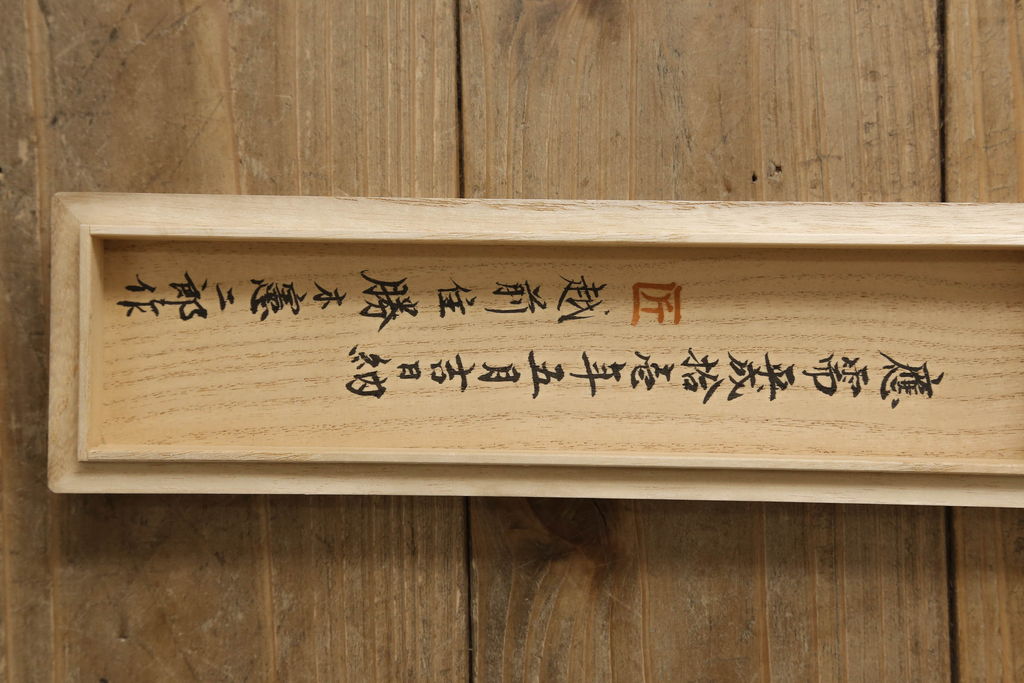 應需平成拾壱年五月吉日納
匠 越前住勝木憲二郎作